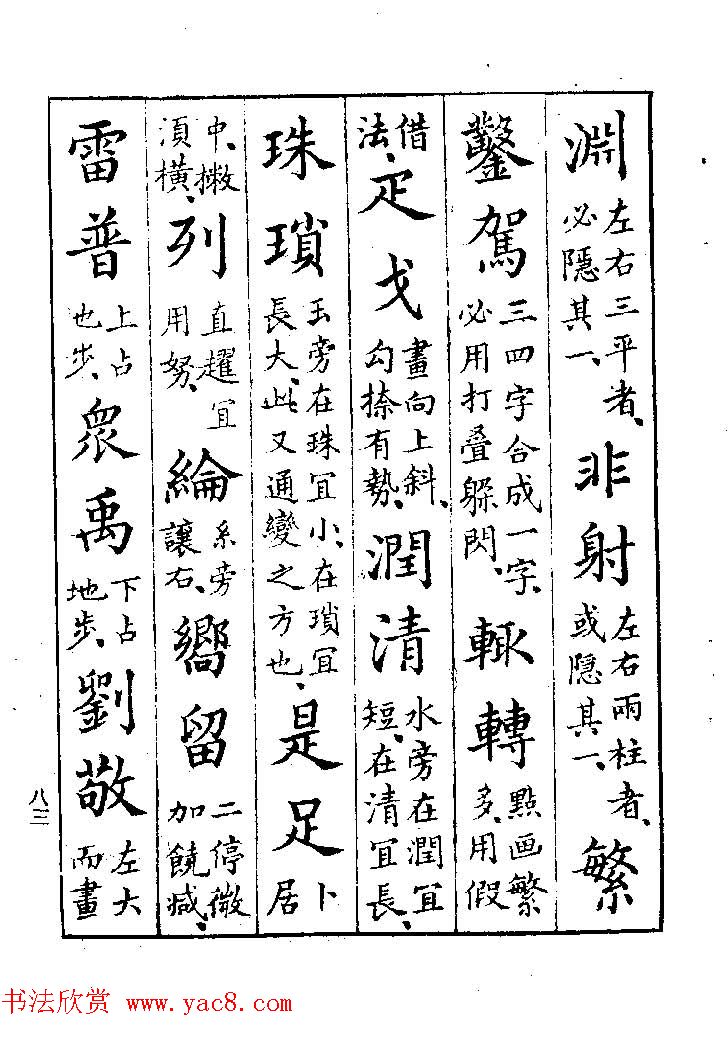 淵左右三平者、必隱其一、非射左右兩柱者、或隱其一、繁
鑿駕三四字合成一字、必用打叠躱閃、輙轉點画繁多、用假
借法、疋戈畫向上斜、勾捺有勢、潤清水旁在潤冝短、在清冝長、
珠瑣玉旁在珠冝小、在瑣冝長大、此又通變之方也、是足卜居
中、撇湏橫、列直趯冝用努、綸糸旁讓右、嚮留二停微加饒減、
雷普上占地步、眾禹下占地步、劉敬左大而畫
八三
书法欣赏 www.yac8.com